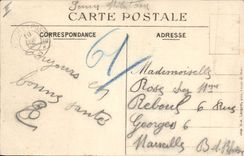 CARTE POSTALE
CORRESPONDANCE
ADRESSE
61
Toujours et
bonne santé
Mademoiselle
Rose
Reboul 6 Rue
Georges 6
Marseille B. d. Rhône